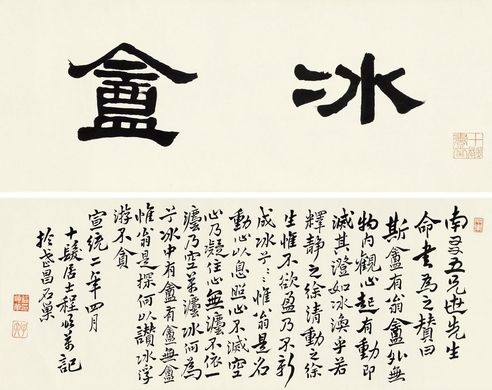 冰盦
南五兄世先生
命書為之贊曰
斯盦有翁盦外無
物內觀心起有動即
滅其澄如冰渙乎若
釋靜之徐清動之徐
生惟不欲盈乃不新
成冰兮〻惟翁是名
動心以息照心不滅空
心乃凝住心無灋不依一
灋乃空萬灋冰何為
兮冰中有盦有盦無盦
惟翁是探何以讚冰浮
游不貪
宣統二年四月
十髮居士程頌萬記
於武昌石巢